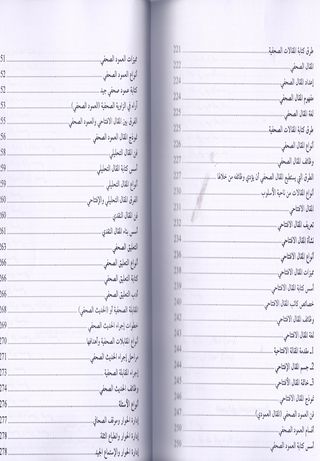 طرق كتابة المقالات الصحفية 221
المقال الصحفي 222
إعداد المقال الصحفي 224
مفهوم المقال الصحفي 224
لغة المقال الصحفي 225
طرق كتابة المقالات الصحفية 225
أنواع المقال الصحفي 226
وظائف المقال الصحفي 227
الطرق التي يستطيع المقال الصحفي أن يؤدي وظائفه من خلالها 227
أنواع المقالات من ناحية الأسلوب 230
المقال الافتتاحي 231
تعريف المقال الافتتاحي 232
نشأة المقال الافتتاحي 234
أنواع المقال الافتتاحي 236
ميزات المقال الافتتاحي
أسس كتابة المقال الافتتاحي
خصائص كاتب المقال الافتتاحي 240
وظائف المقال الافتتاحي 242
لغة المقال الافتتاحي 243
1- مقدمة المقالة الافتتاحية 244
2- جسم المقال الإفتتاحي 244
3- خاتمة المقال الأفتتاحي 245
نموذج المقال الافتتاحي 246
فن العمود الصحفي (المقال العمودي) 247
أقسام العمود الصحفي 250
أسس كتابة العمود الصحفي 250
ميزات العمود الصحفي 251
أنواع العمود الصحفي 252
كتابة عمود صحفي جيد 252
آراء في الزاوية الصحفية (العمود الصحفي) 253
الفرق بين المقال الافتتاحي والعمود الصحفي 255
نموذج المقال العمود الصحفي 256
فن المقال التحليلي 258
أسس كتابة المقال التحليلي 259
أنواع المقال التحليلي 259
الفرق المقال التحليلي والإفتتاحي 260
فن المقال النقدي 260
أسس بناء المقال النقدي 261
التعليق الصحفي 263
أنواع التعليق الصحفي 266
كتابة التعليق الصحفي 266
أدب التعليق الصحفي 266
المقابلة الصحفية أو (الحديث الصحفي) 268
خطوات إجراء الحديث الصحفي 269
أنواع المقابلات الصحفية وأهدافها 270
مراحل إجراء الحديث الصحفي 271
إجراء المقابلة الصحفية 273
وظائف الحديث الصحفي 274
أنواع الأسئلة 276
إدارة الحوار وموقف الصحافي 277
إدارة الحوار وانطباع الثقة 278
إدارة الحوار والإستماع الجيد 278